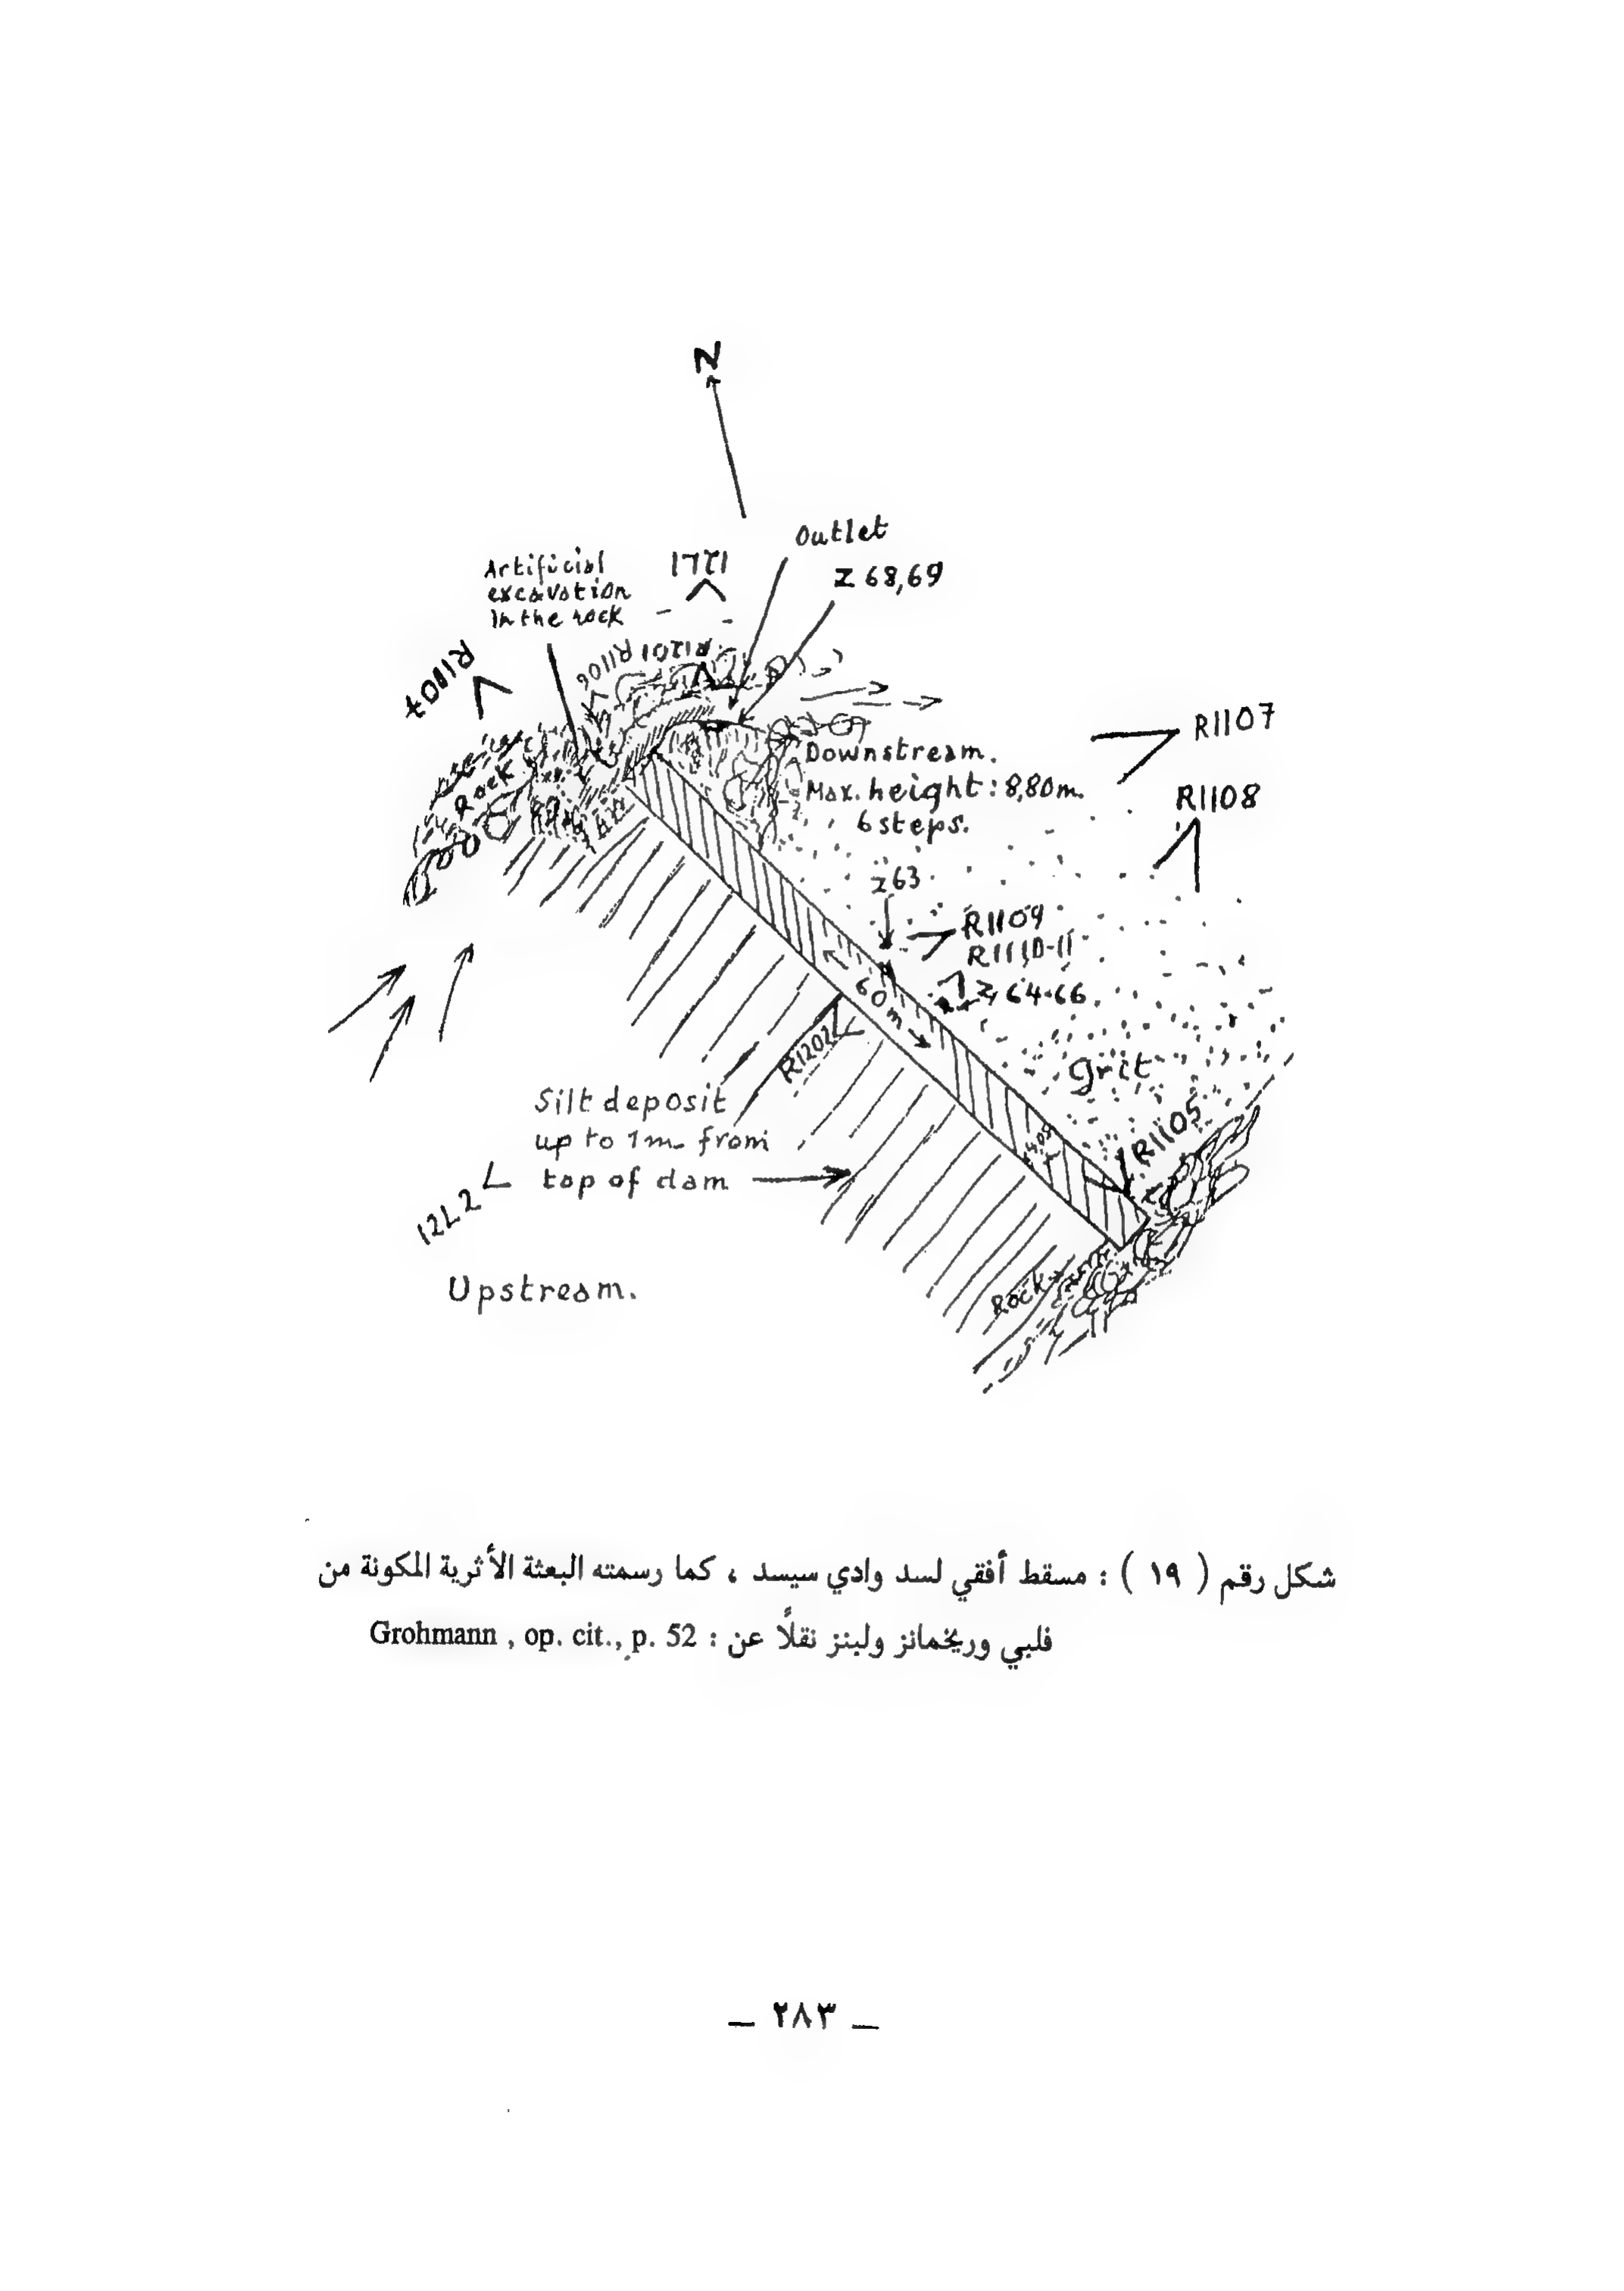 N
Outlet
Z 68,69
Artificial
excavation
in the rock
R1107
Rock
Downstream.
Max. height : 8,80m.
6 steps.
R1107
R1108
Z63
R1109
R1110-11
Z, 64-66.
60 m
R1202
Grit
R1105
Silt deposit
up to 1m from
top of dam
Upstream.
Rock
شكل رقم ( ١٩ ) : مسقط أفقي لسد وادي سيسد ، كما رسمته البعثة الأثرية المكونة من
فلبي وريخمانز ولبنز نقلاً عن : Grohmann , op. cit., p. 52
ــ ٢٨٣ ــ